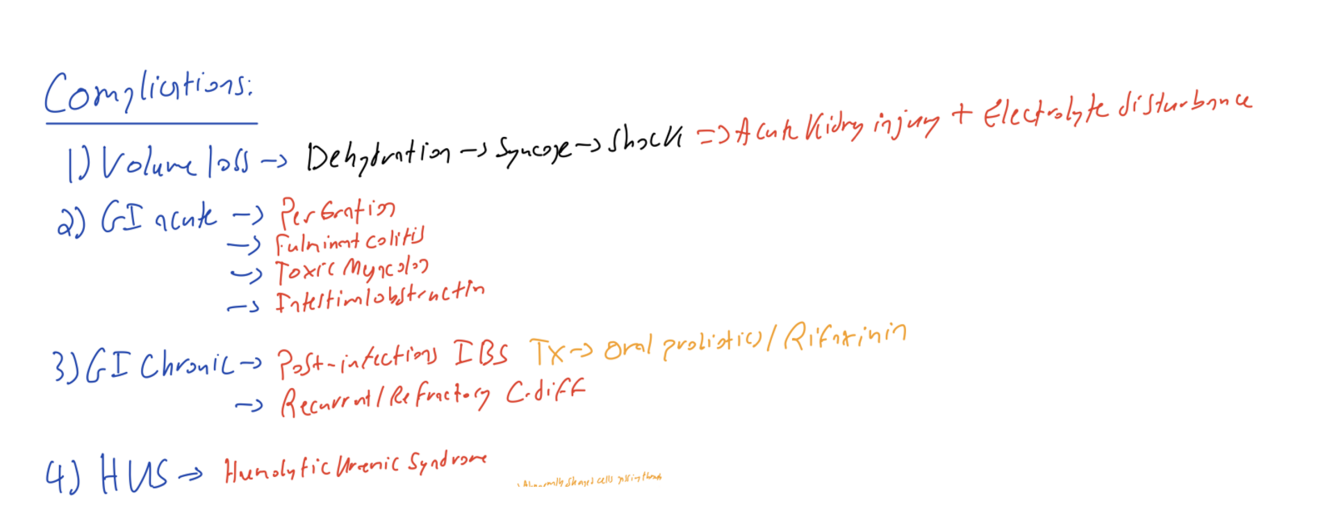 Complications:
1) Volume loss -> Dehydration -> Syncope -> Shock => Acute Kidny injury + Electrolyte disturbance
2) GI acute -> Perforation
-> Fulminant colitis
-> Toxic Mygcolon
-> Intestinal obstructin
3) GI Chronic -> Post-infections IBS Tx -> Oral probiotics / Rifaximin
-> Recurrant / Refractory C.diff
4) HUS -> Hemolytic Uremic Syndrome
Abnormally Shaped cells